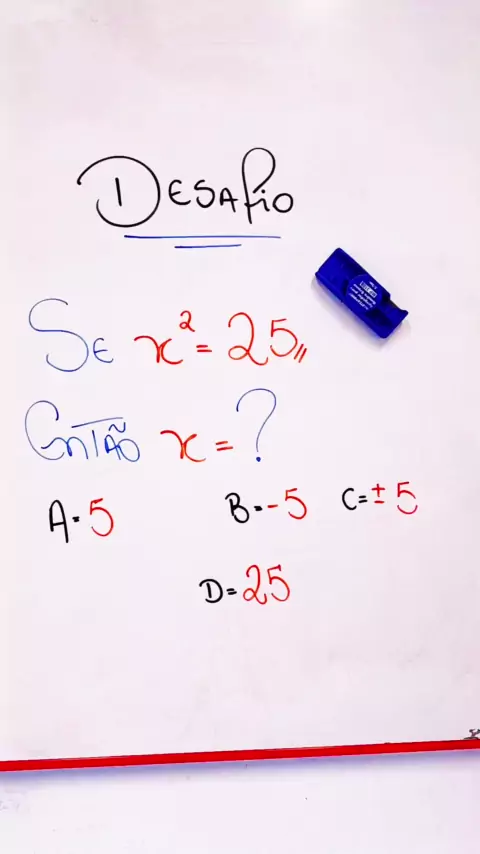 DESAFIO
SE x² = 25,,
ENTÃO x = ?
A = 5 B = -5 C = ± 5
D = 25